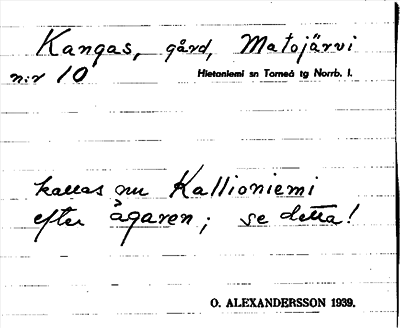 Kangas, gård, Matojärvi
n:r 10 Hietaniemi sn Torneå tg Norrb. l.
kallas nu Kallioniemi
efter ägaren; se detta!
O. ALEXANDERSSON 1939.